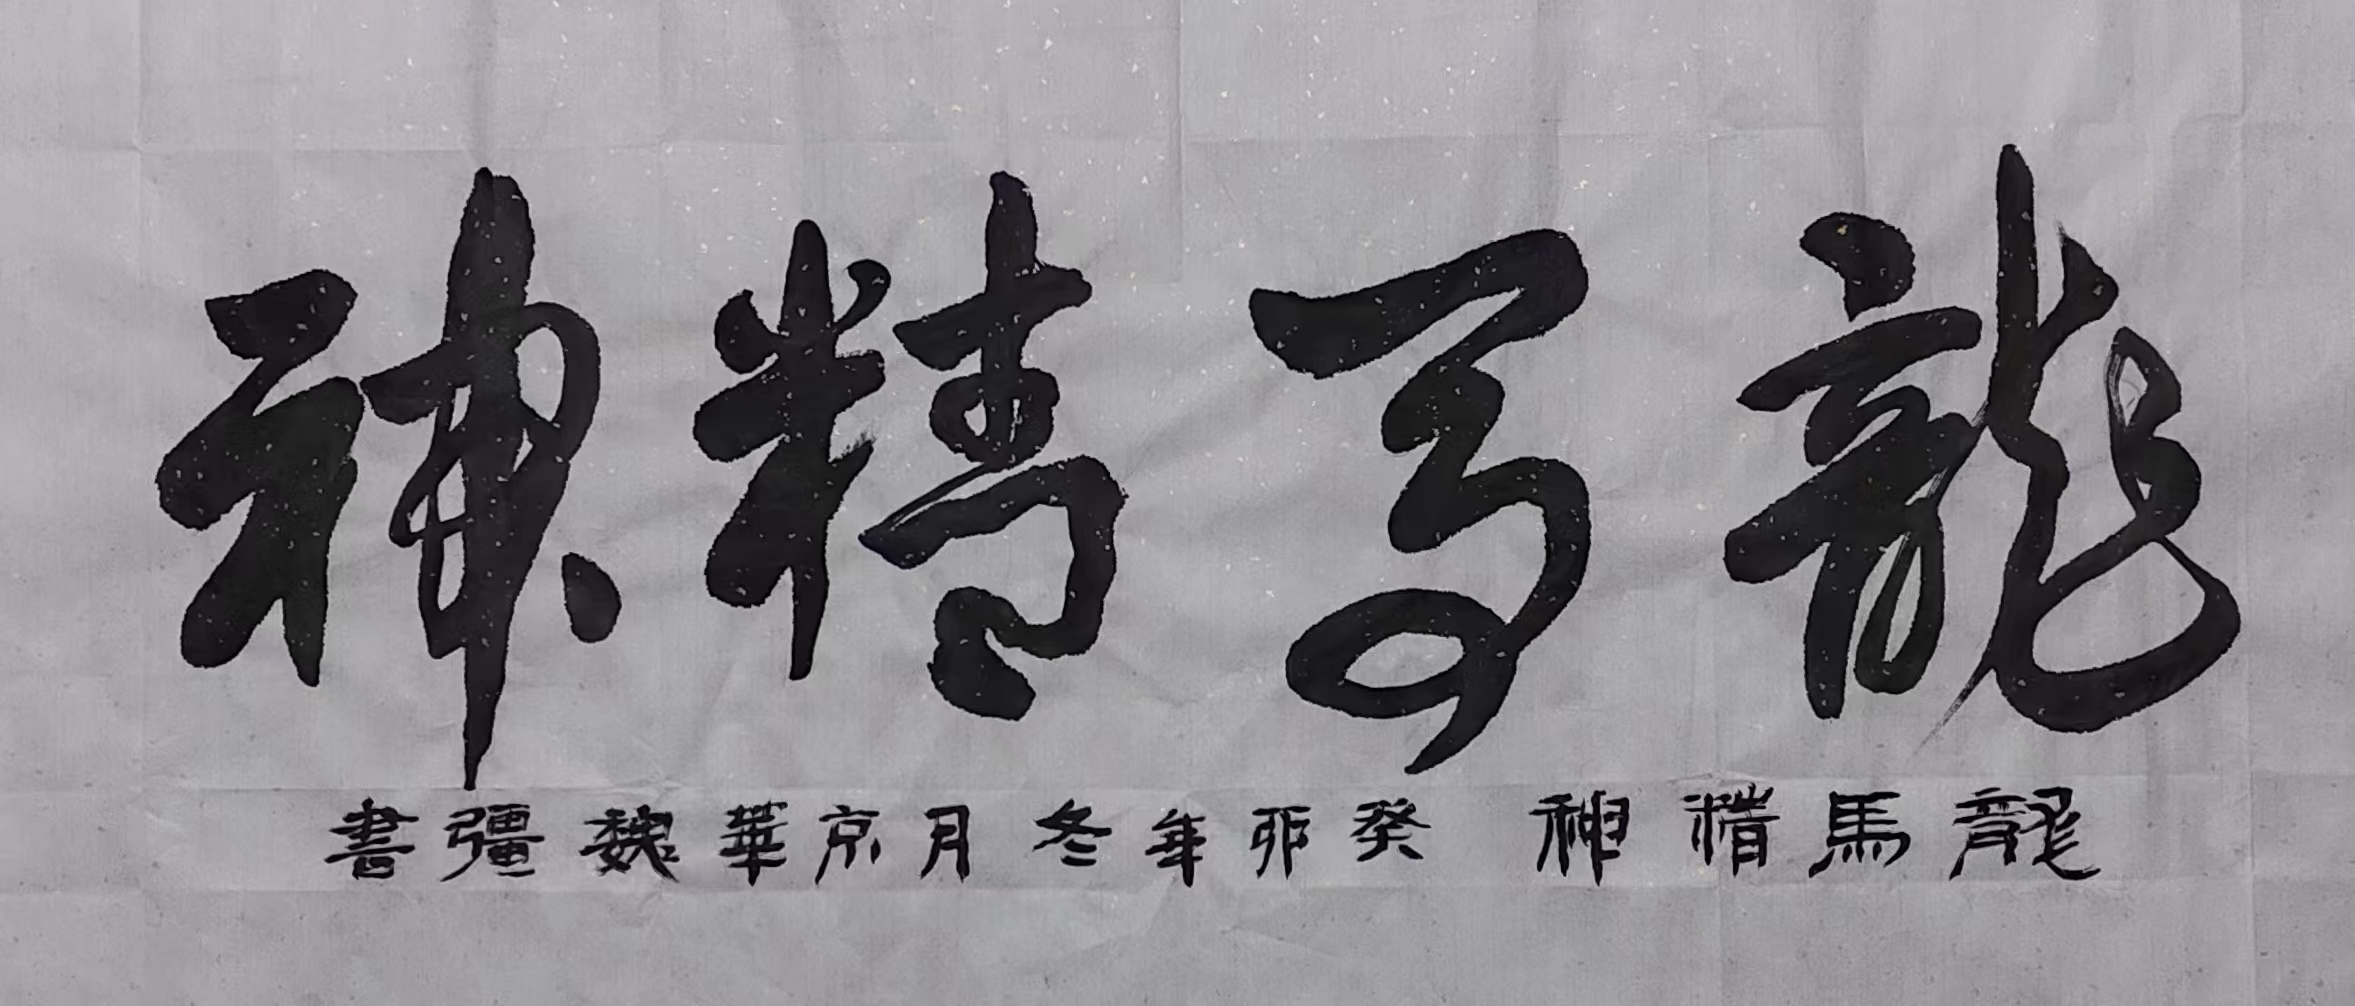 龍馬精神
龍馬精神 癸卯年冬月京華魏彊書